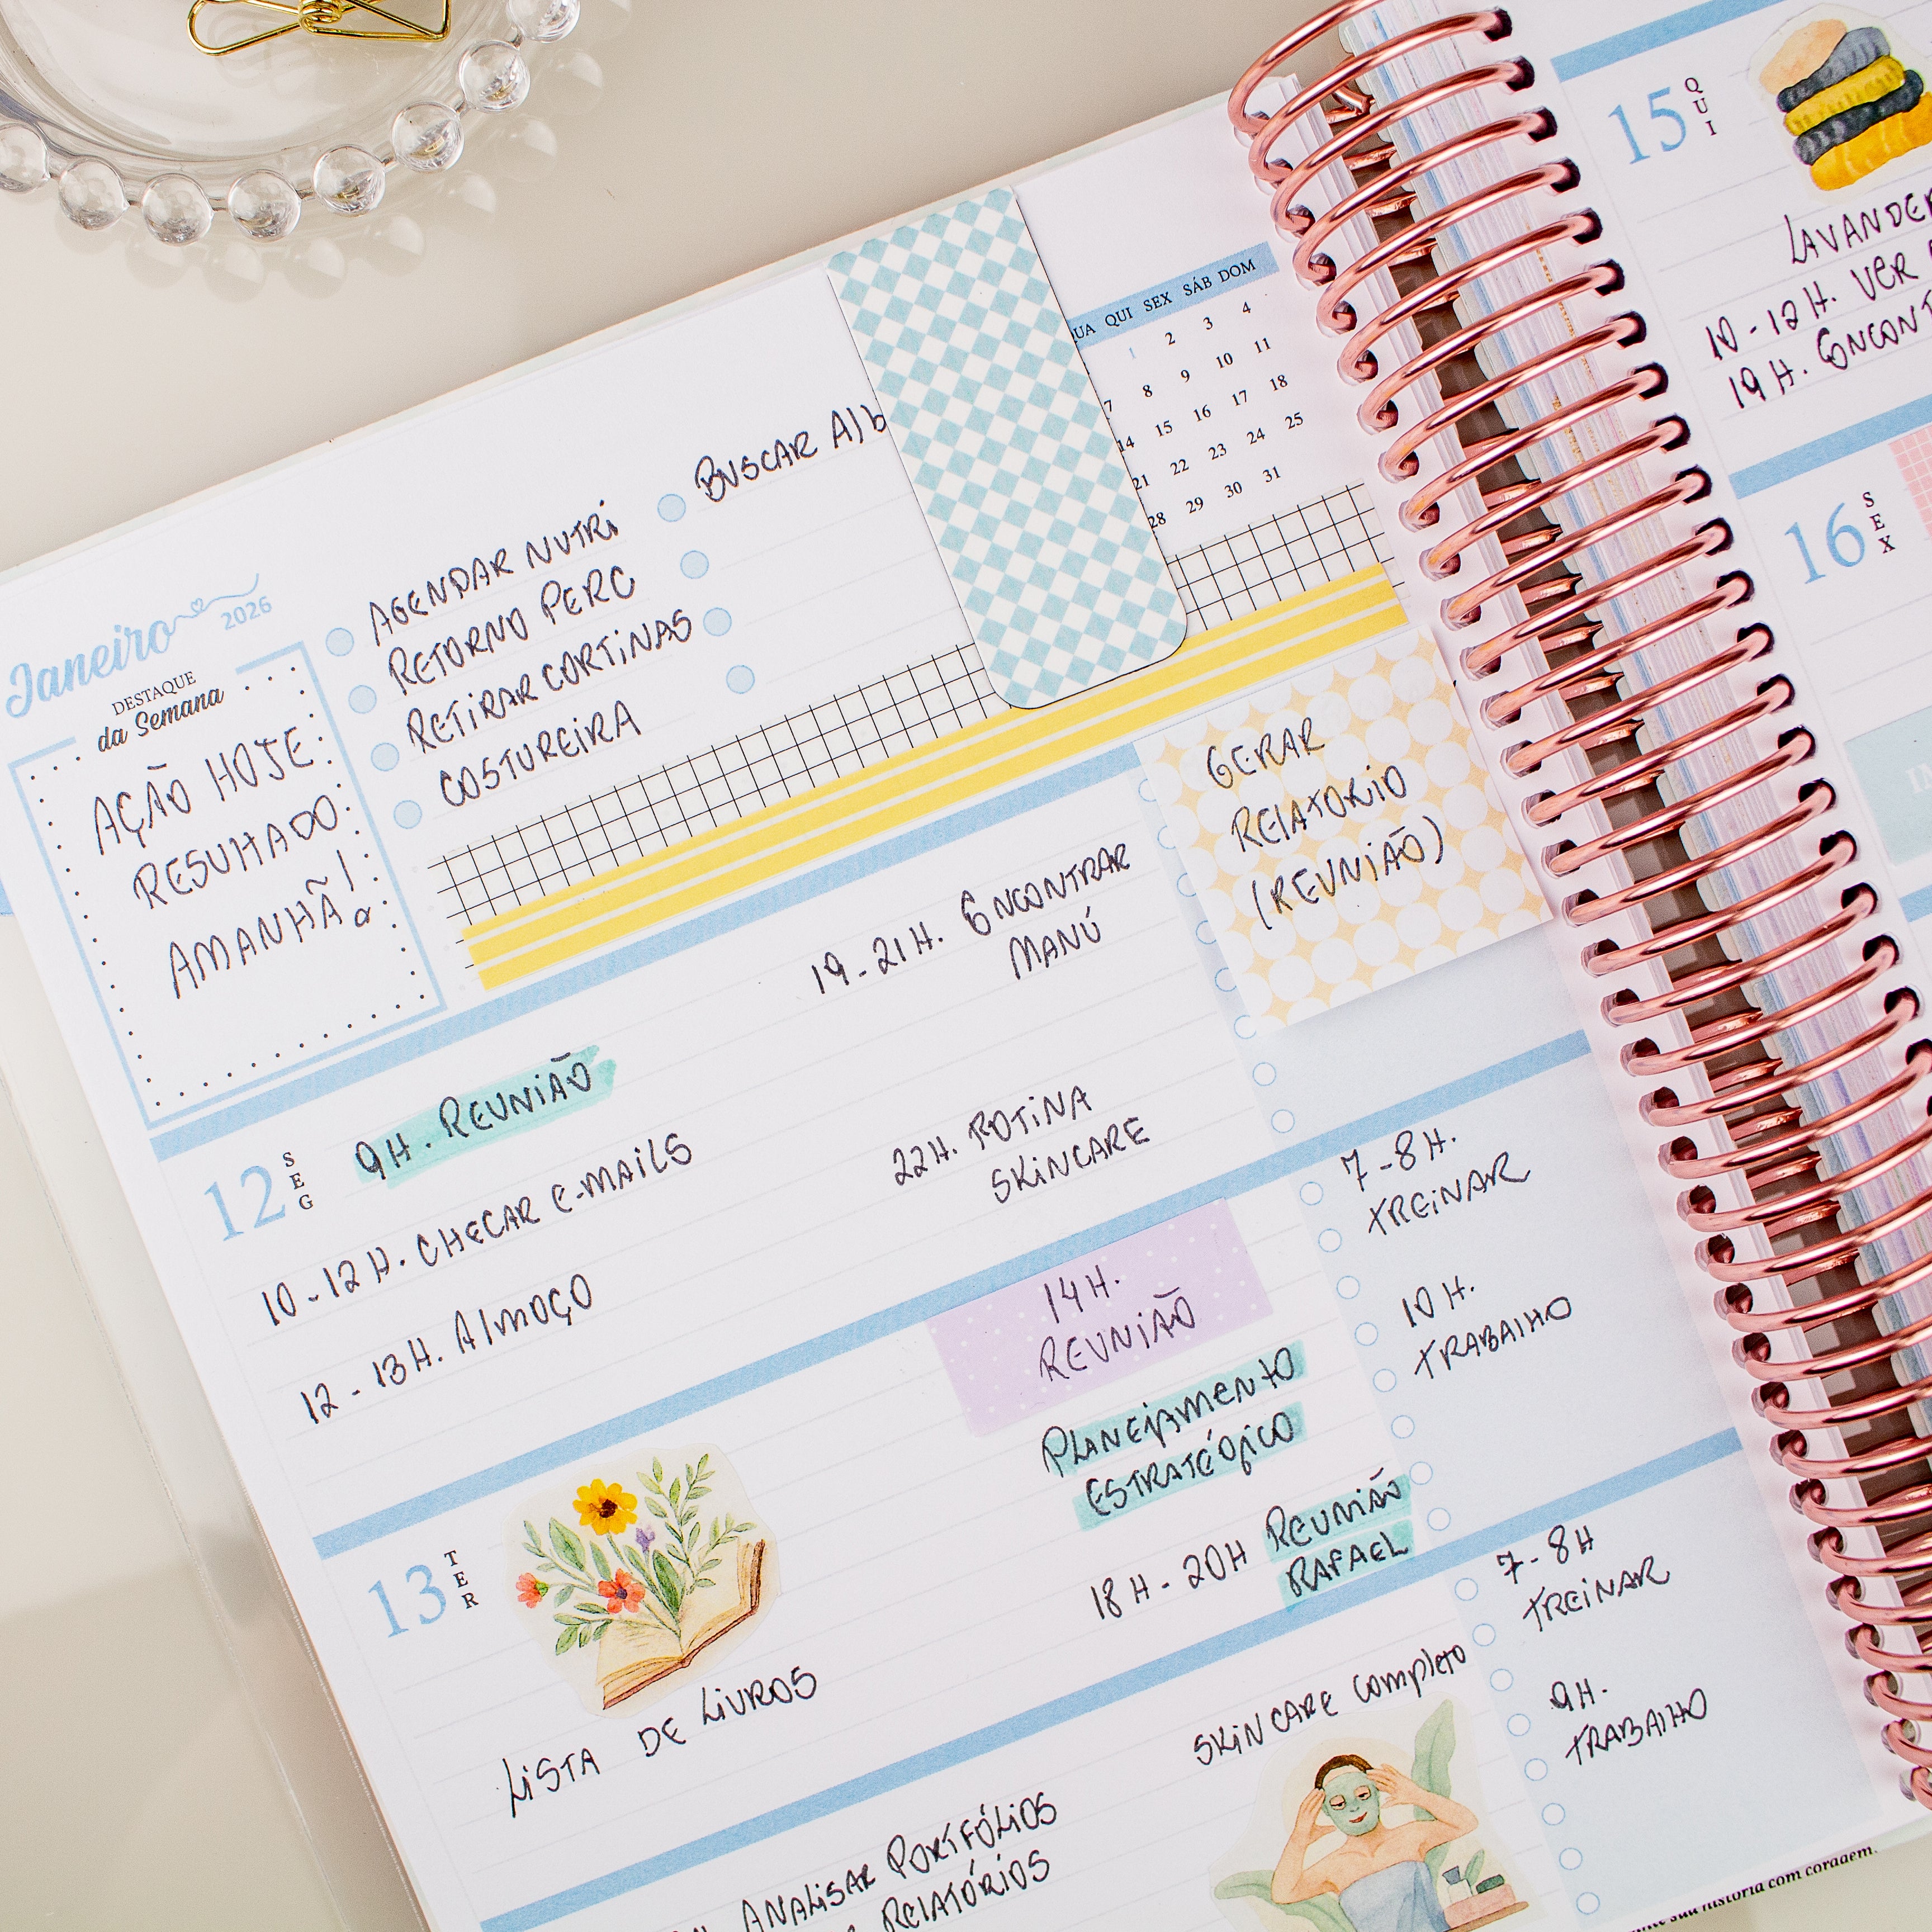 Janeiro 2026
DESTAQUE
da Semana
AÇÃO HOJE
RESULTADO
AMANHÃ!
AGENDAR NUTRI
RETORNO PERC
RETIRAR CORTINAS
COSTUREIRA
BUSCAR Alb
QUI SEX SÁB DOM
1 2 3 4
7 8 9 10 11
14 15 16 17 18
21 22 23 24 25
28 29 30 31
GERAR
RELATORIO
(REUNIÃO)
12 SEG
9H. REUNIÃO
10-12H. CHECAR E-MAILS
12-13H. AlMOÇO
19-21H. ENCONTRAR
MANÚ
22H. ROTINA
SKINCARE
7-8H.
TREINAR
10H.
TRABAlHO
13 TER
LISTA DE LIVROS
14H.
REUNIÃO
PLANEJAMENTO
ESTRATÉGICO
18H-20H REUNIÃO
RAFAEL
7-8H
TREINAR
9H.
TRABAlHO
ANALISAR PORTFÓLIOS
RELATÓRIOS
SKINCARE completo
sua história com coragem.
15 QUI
10-12H. VER
19H.
16 SEX